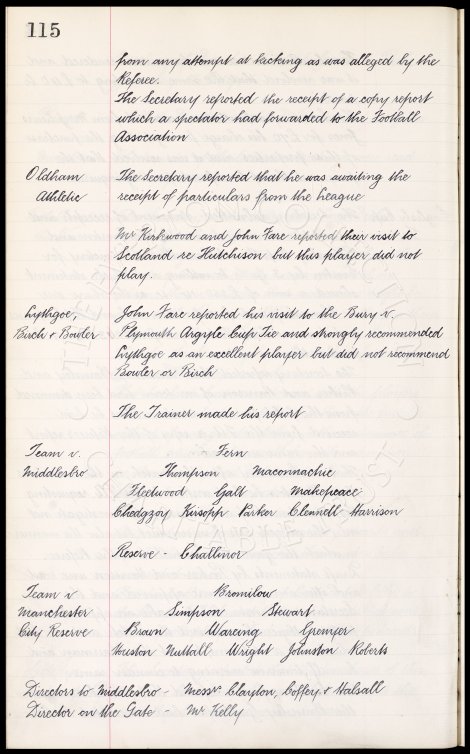 115
from any attempt at hacking as was alleged by the
Referee.
The Secretary reported the receipt of a copy report
which a spectator had forwarded to the Football
Association
Oldham
Athletic
The Secretary reported that he was awaiting the
receipt of particulars from the League
Mr Kirkwood and John Fare reported their visit to
Scotland re Hutchison but this player did not
play.
Lythgoe,
Birch & Bowler
John Fare reported his visit to the Bury v.
Plymouth Argyle Cup Tie and strongly recommended
Lythgoe as an excellent player but did not recommend
Bowler or Birch
The Trainer made his report
Team v.
Middlesbro
Fern
Thompson Maconnachie
Fleetwood Galt Makepeace
Chedgzoy Kirsopp Parker Clennell Harrison
Reserve - Challinor
Team v
Manchester
City Reserve
Bromilow
Simpson Stewart
Brown Wareing Grenyer
Houston Nuttall Wright Johnston Roberts
Directors to Middlesbro - Messrs Clayton, Coffey & Halsall
Director on the Gate - Mr Kelly